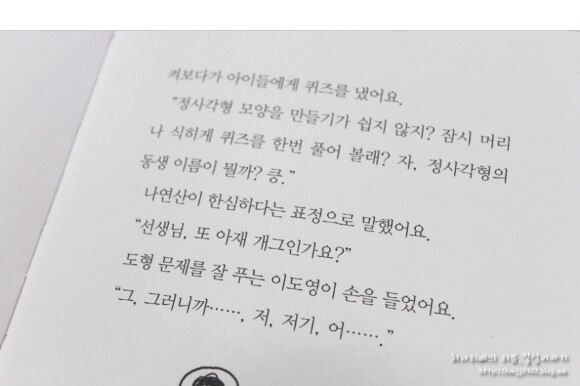 켜보다가 아이들에게 퀴즈를 냈어요.
“정사각형 모양을 만들기가 쉽지 않지? 잠시 머리
나 식히게 퀴즈를 한번 풀어 볼래? 자, 정사각형의
동생 이름이 뭘까? 킁.”
나연산이 한심하다는 표정으로 말했어요.
“선생님, 또 아재 개그인가요?”
도형 문제를 잘 푸는 이도영이 손을 들었어요.
“그, 그러니까……, 저, 저기, 어…….”